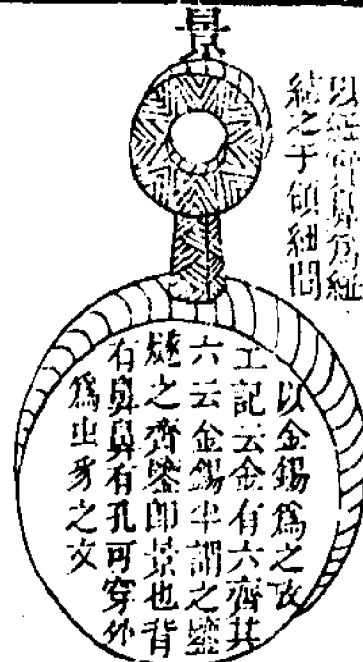 景
以經穿鼻爲紐
結之于領紐間
以金錫爲之攷
工記云金有六齊其
六云金錫半謂之鑒
燧之齊鑒卽景也背
有鼻鼻有孔可穿外
爲虫豸之文